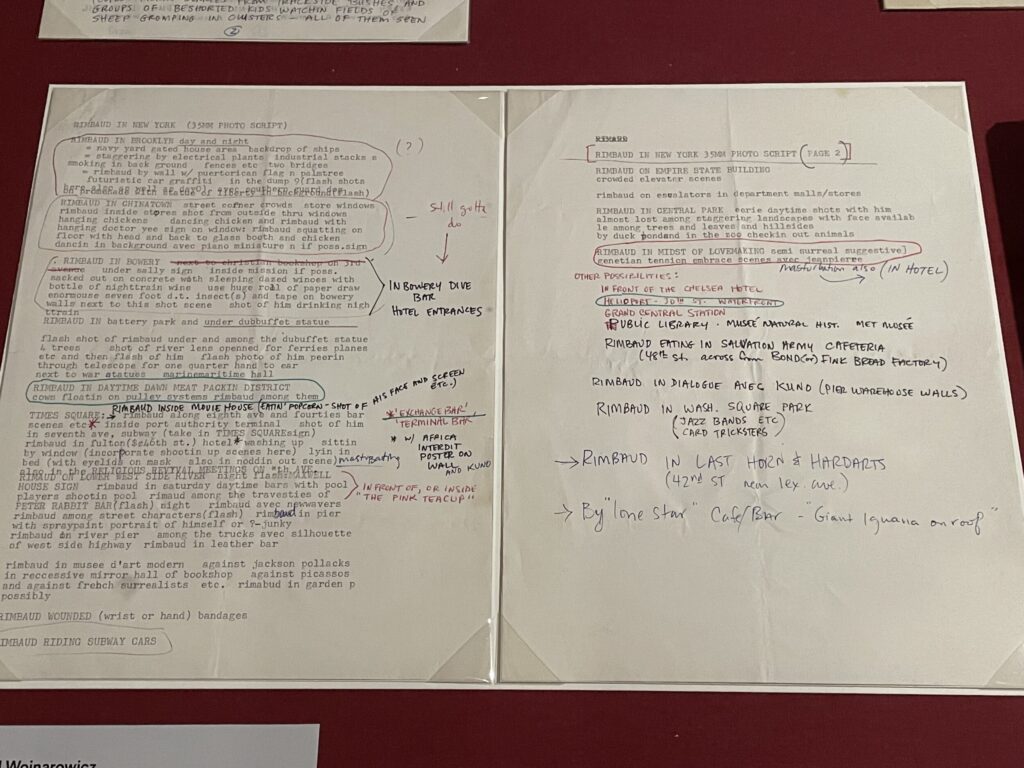 GROUPS OF BESHORTED KIDS WATCHIN FIELDS OF
SHEEP GROMPING IN CLUSTERS - ALL OF THEM SEEN
2
RIMBAUD IN NEW YORK (35MM PHOTO SCRIPT)
RIMBAUD IN BROOKLYN day and night
= navy yard gated house area backdrop of ships
= staggering by electrical plants industrial stacks s
smoking in back ground fences etc two bridges
= rimbaud by wall w/ puertorican flag n palmtree
futuristic car graffiti in the dump ?(flash shots
on homemade with statue of liberty in background(flash)
(?)
RIMBAUD IN CHINATOWN street corner crowds store windows
rimbaud inside stores shot from outside thru windows
hanging chickens dancing chicken and rimbaud with
hanging doctor yee sign on window: rimbaud squatting on
floor with head and back to glass booth and chicken
dancin in background avec piano miniature n if poss.sign
- still gotta
do
RIMBAUD IN BOWERY next to christian bookshop on 3rd
avenue under sally sign inside mission if poss.
sacked out on concrete with sleeping dazed winoes with
bottle of nighttrain wine use huge roll of paper draw
enormouse seven foot d.t. insect(s) and tape on bowery
walls next to this shot scene shot of him drinking nigh
ttrain
IN BOWERY DIVE
BAR
HOTEL ENTRANCES
RIMBAUD IN battery park and under dubbuffet statue
flash shot of rimbaud under and among the dubuffet statue
& trees shot of river lens openned for ferries planes
etc and then flash of him flash photo of him peerin
through telescope for one quarter hand to ear
next to war statues marinemaritime hall
RIMBAUD IN DAYTIME DAWN MEAT PACKIN DISTRICT
cows floatin on pulley systems rimbaud among them
RIMBAUD INSIDE MOVIE HOUSE (EATIN' POPCORN - SHOT OF HIS FACE AND SCREEN
ETC.)
TIMES SQUARE: rimbaud along eighth ave and fourties bar
scenes etc* inside port authority terminal shot of him
in seventh ave, subway (take in TIMES SQUAREsign)
rimbaud in fulton($2 46th st.) hotel* washing up sittin
by window (incorporate shootin up scenes here) lyin in
bed (with eyelids on mask also in noddin out scene) masturbating
also in the RELIGIOUS REVIVAL MEETINGS ON 8th AVE
* 'EXCHANGE BAR'
'TERMINAL BAR'
* W/ AFRICA
INTERDIT
POSTER ON
WALL AND KUNO
RIMAUD ON LOWER WEST SIDE RIVER night flash MAXWELL
HOUSE SIGN rimbaud in saturday daytime bars with pool
players shootin pool rimaud among the travesties of
PETER RABBIT BAR(flash) night rimbaud avec newwavers
rimbaud among street characters(flash) rimbaud in pier
with spraypaint portrait of himself or ?-junky
rimbaud on river pier among the trucks avec silhouette
of west side highway rimbaud in leather bar
IN FRONT OF, OR INSIDE
"THE PINK TEACUP"
rimbaud in musee d'art modern against jackson pollacks
in reccessive mirror hall of bookshop against picassos
and against frebch surrealists etc. rimabud in garden p
possibly
RIMBAUD WOUNDED (wrist or hand) bandages
IMBAUD RIDING SUBWAY CARS
RIMBAUD IN NEW YORK 35MM PHOTO SCRIPT (PAGE 2)
RIMBAUD ON EMPIRE STATE BUILDING
crowded elevater scenes
rimbaud on escalators in department malls/stores
RIMBAUD IN CENTRAL PARK eerie daytime shots with him
almost lost among staggering landscapes with face availab
le among trees and leaves and hillsides
by duck pondand in the zoo checkin out animals
RIMBAUD IN MIDST OF LOVEMAKING semi surreal suggestive]
genetian tension embrace scenes avec jeanpierre
masturbation also (IN HOTEL)
OTHER POSSIBILITIES:
IN FRONT OF THE CHELSEA HOTEL
HELIOPORT - 30th ST. WATERFRONT
GRAND CENTRAL STATION
PUBLIC LIBRARY • MUSEÉ NATURAL HIST. MET MUSÉE
RIMBAUD EATING IN SALVATION ARMY CAFETERIA
(48th st. across from BOND(or) FINK BREAD FACTORY)
RIMBAUD IN DIALOGUE AVEC KUNO (PIER WAREHOUSE WALLS)
RIMBAUD IN WASH. SQUARE PARK
(JAZZ BANDS ETC)
CARD TRICKSTERS)
→ RIMBAUD IN LAST HORN & HARDARTS
(42nd ST near lex. ave.)
→ By "lone Star" Cafe/Bar - "Giant Iguana on roof"
Wojnarowicz